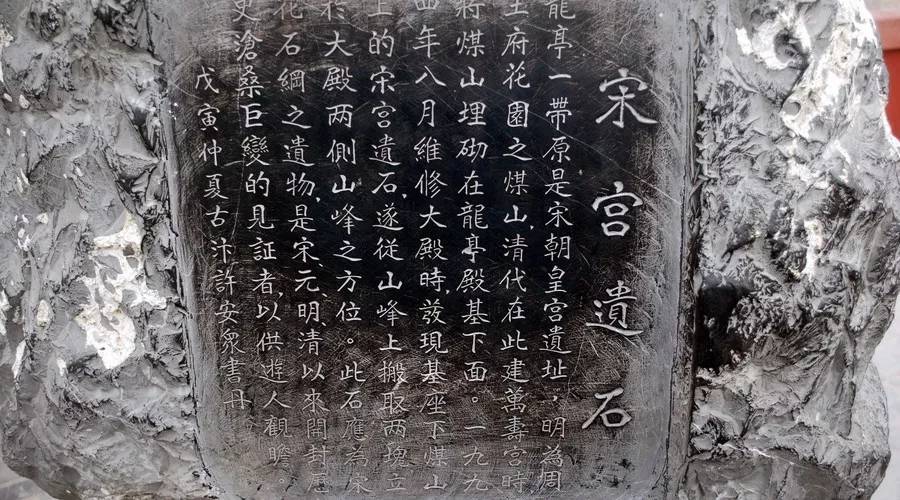 宋宮遺石
龍亭一帶原是宋朝皇宮遺址，明為周
王府花園之煤山,清代在此建萬壽宮時
將煤山埋砌在龍亭殿基下面。一九九
四年八月維修大殿時,發現基座下煤山
上的宋宮遺石,遂從山峰上搬取两塊立
於大殿两側山峰之方位。此石應為宋
花石綱之遺物,是宋、元、明、清以來開封歷
史滄桑巨變的見証者,以供遊人觀瞻。
戊寅仲夏古汴許安眾書丹